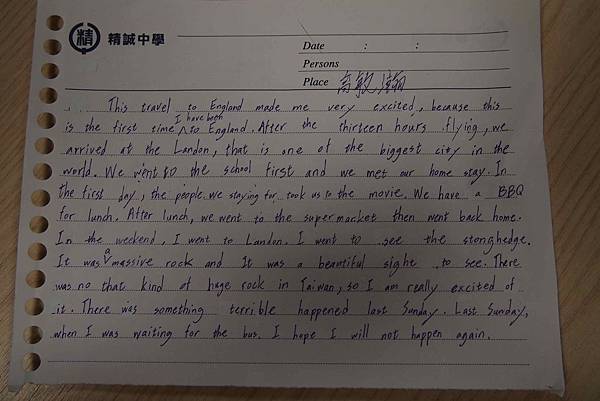 精 精誠中學
Date : :
Persons
Place 高敏瀚
This travel to England made me very excited, because this
I have been
is the first time to England. After the thirteen hours flying, we
arrived at the Landon, that is one of the biggest city in the
world. We went to the school first and we met our home stay. In
the first day, the people we staying for took us to the movie. We have a BBQ
for lunch. After lunch, we went to the supermarket then went back home.
In the weekend, I went to Landon. I went to see the stonghedge.
It was a massive rock and It was a beautiful sight to see. There
was no that kind of huge rock in Taiwan, so I am really excited of
it. There was something terrible happened last Sunday. Last Sunday,
when I was waiting for the bus. I hope I will not happen again.